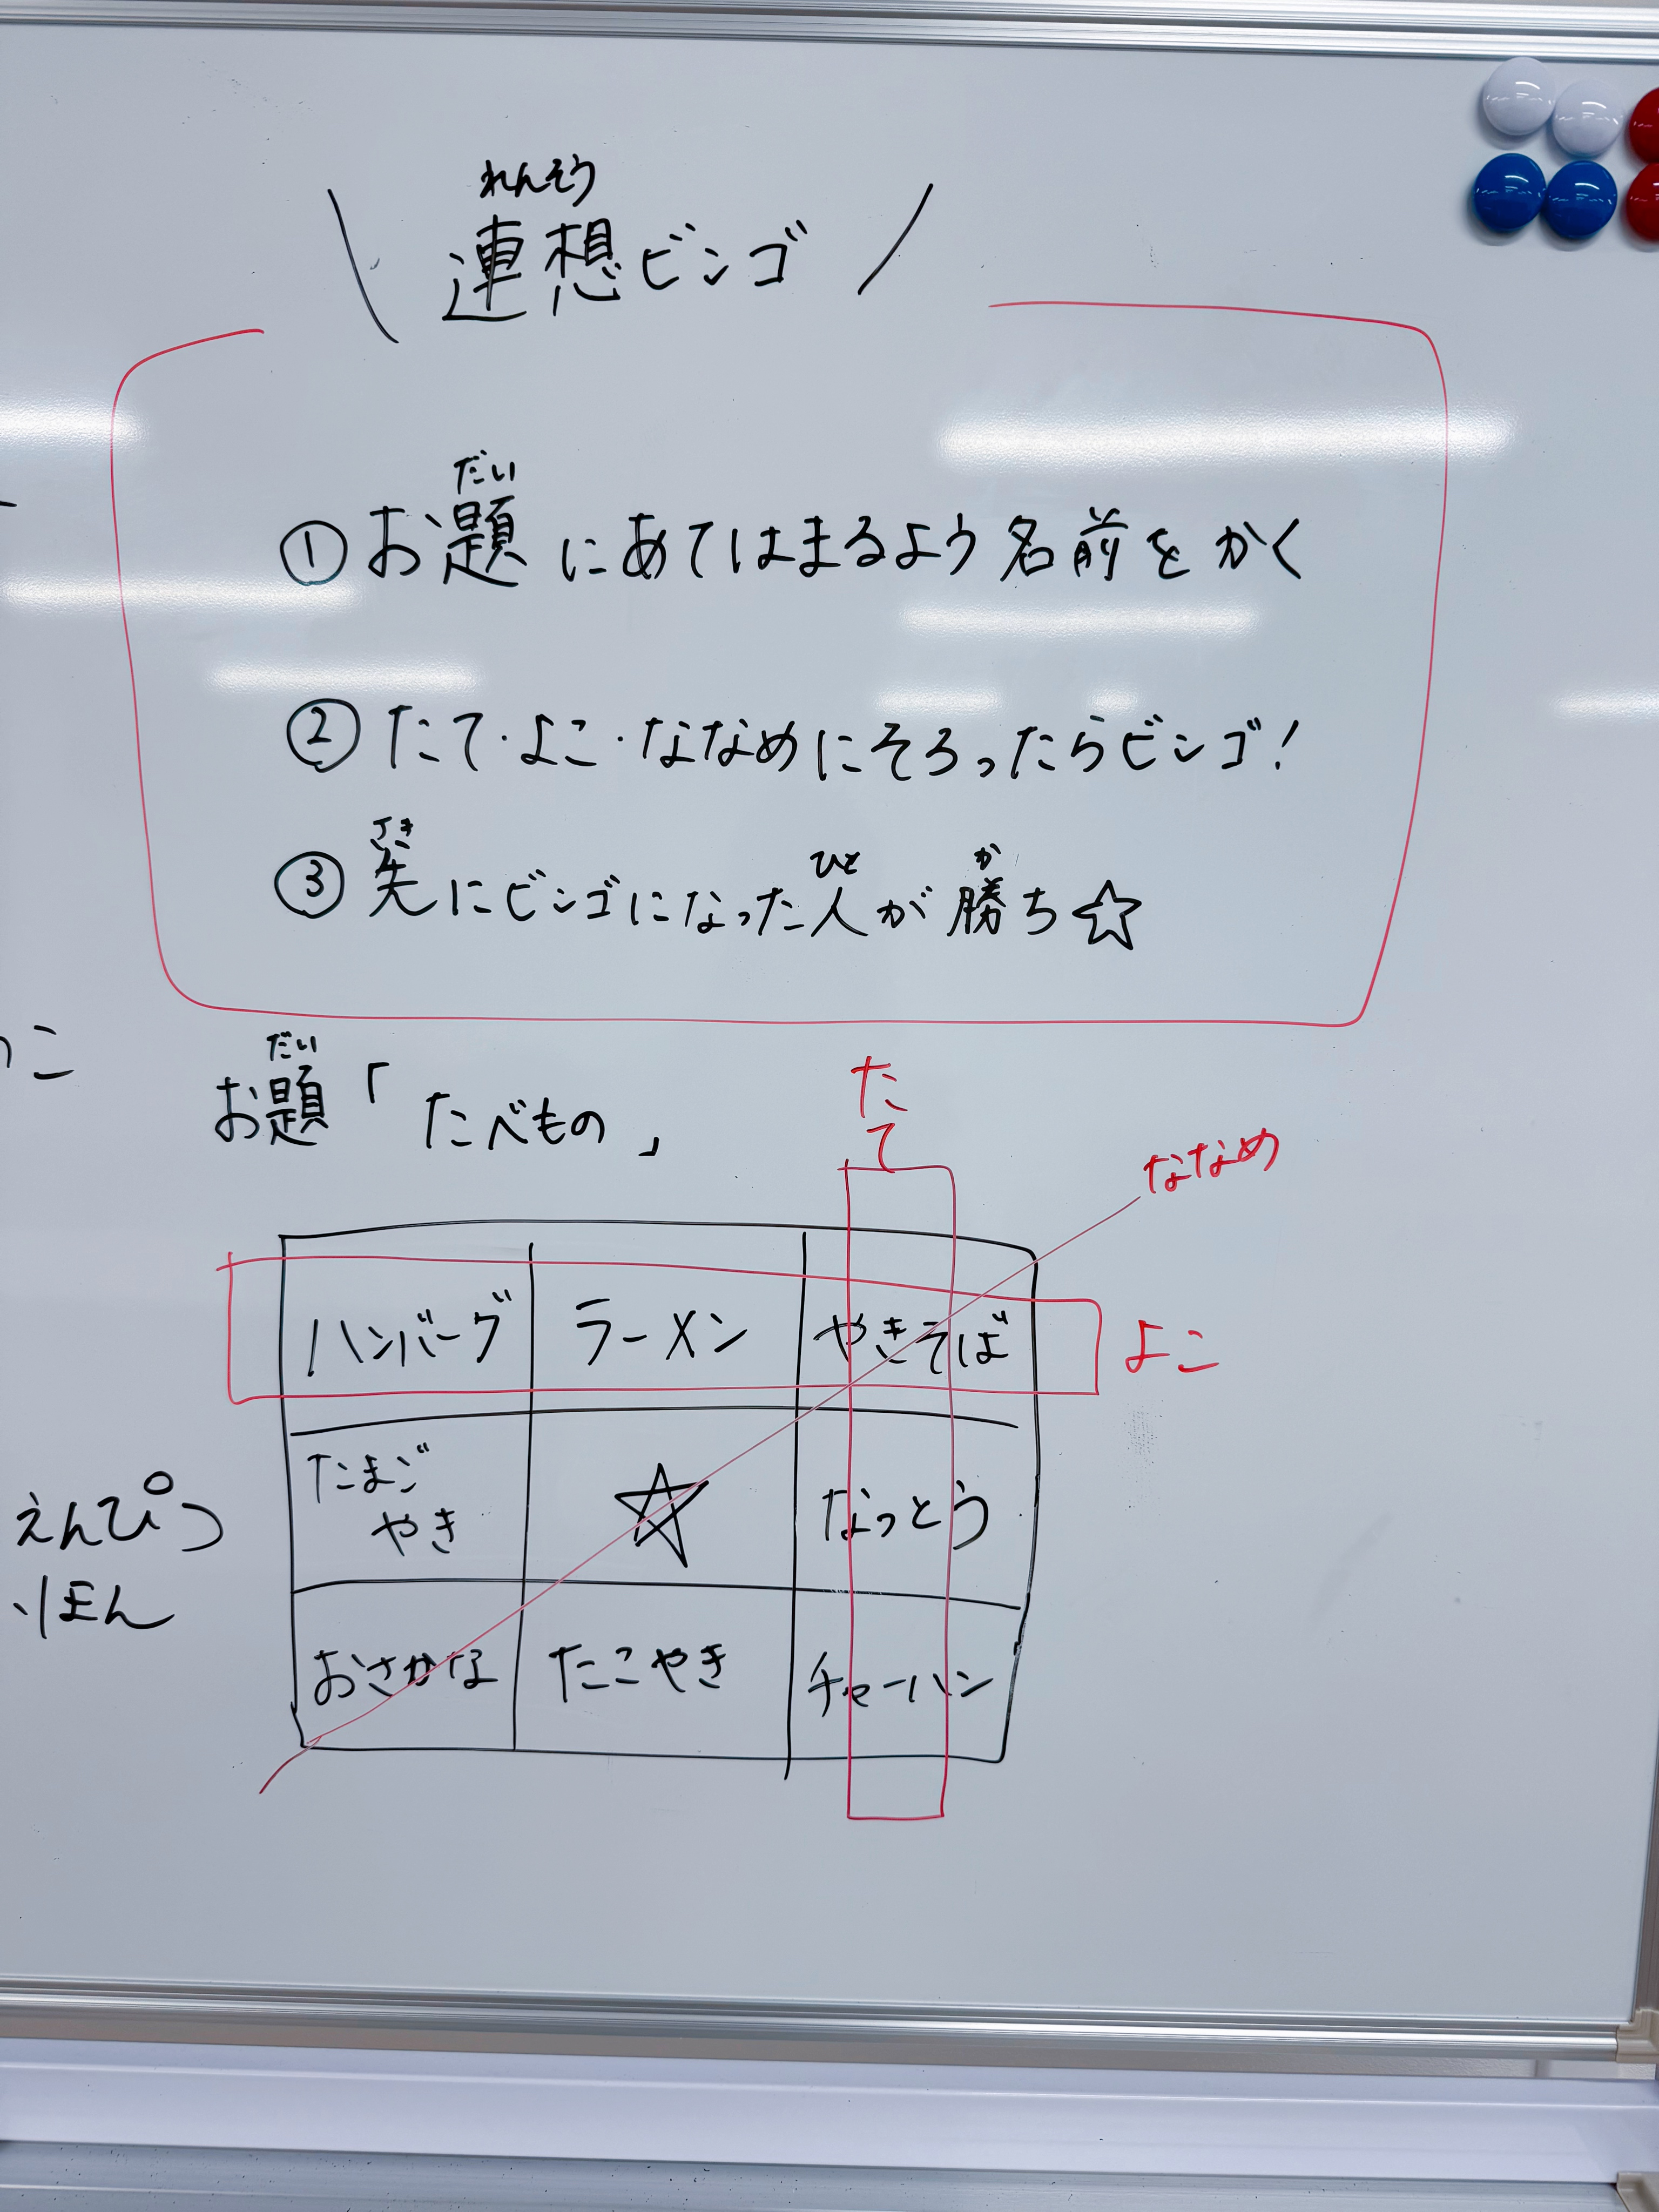 れんそう
連想ビンゴ
だい
①お題にあてはまるよう名前をかく
②たて・よこ・ななめにそろったらビンゴ!
さき ひと か
③先にビンゴになった人が勝ち☆
だい
お題「たべもの」
たて
ななめ
ハンバーグ ラーメン やきそば
よこ
たまご
やき
☆
なっとう
おさかな たこやき チャーハン
えんぴつ